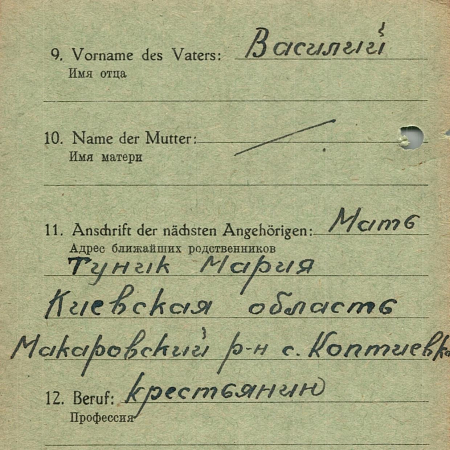 9. Vorname des Vaters: Василий
Имя отца
10. Name der Mutter:
Имя матери
11. Anschrift der nächsten Angehörigen: Мать
Адрес ближайших родственников
Тунік Мария
Киевская область
Макаровский р-н с. Коптиевка
12. Beruf: крестьянин
Профессия